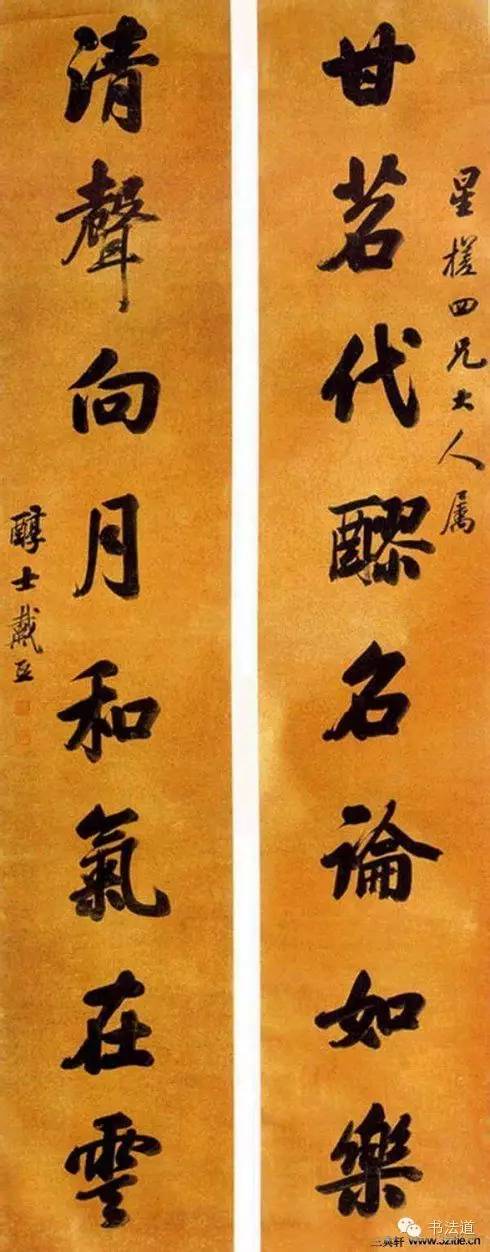 星槎四兄大人属
甘茗代醪名論如樂
清聲向月和氣在雲
醇士戴熙
书法道